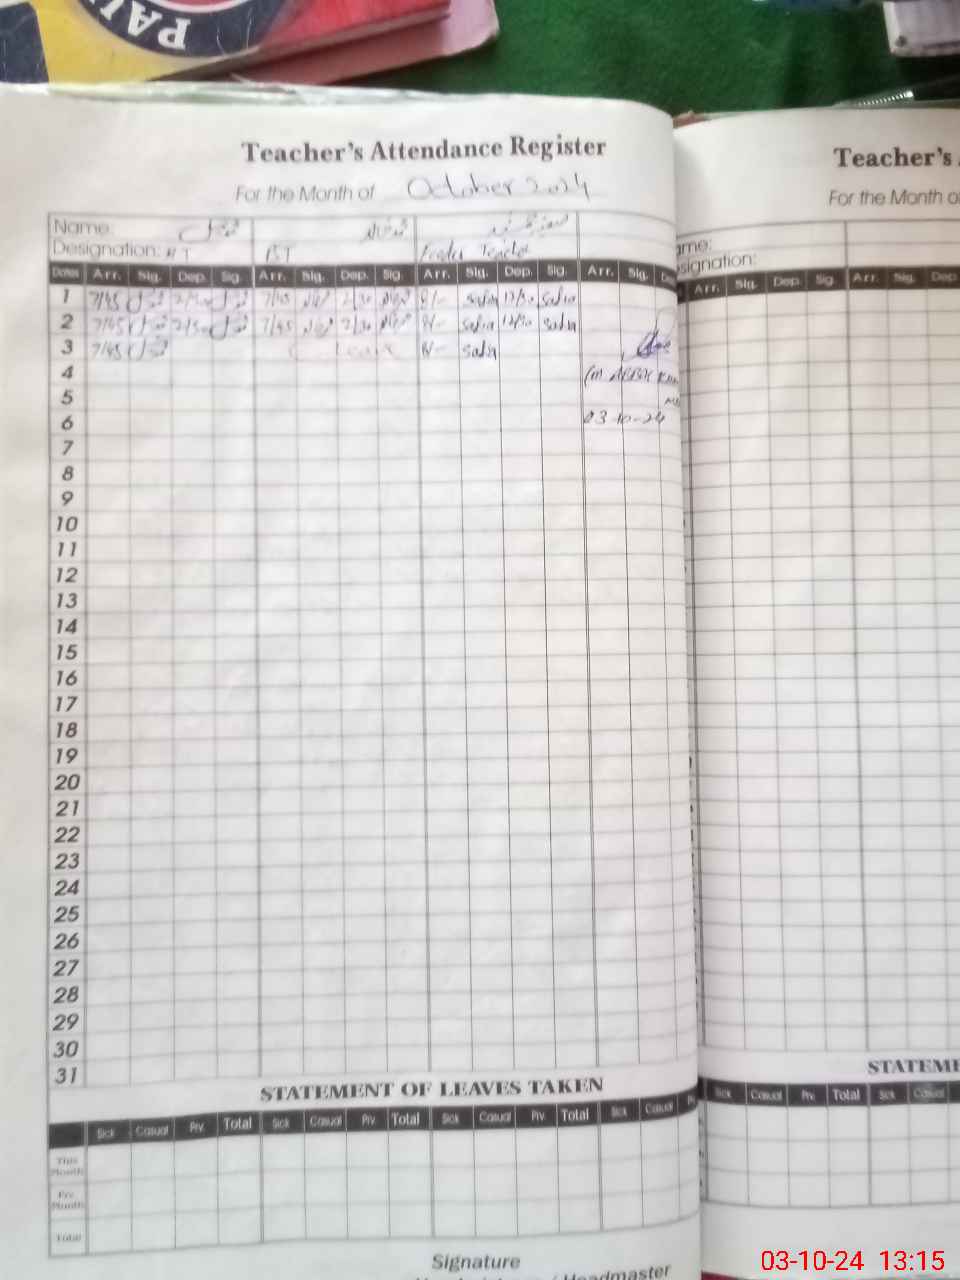 PAK
Teacher's Attendance Register
For the Month of October 2024
Name:
Designation: HT PST Feeder Teacher
Dates Arr. Sig. Dep. Sig. Arr. Sig. Dep. Sig. Arr. Sig. Dep. Sig. Arr. Sig. De
1 7/45 2/30 7/45 2/30 8/- Sadia 12/30 Sadia
2 7/45 2/30 7/45 2/30 8/- Sadia 12/30 Sadia
3 7/45 C Leave 8/- Sadia
4
5
6 03-10-24
7
8
9
10
11
12
13
14
15
16
17
18
19
20
21
22
23
24
25
26
27
28
29
30
31
STATEMENT OF LEAVES TAKEN
Sick Casual Prv. Total Sick Casual Prv. Total Sick Casual Prv. Total Sick Casual
This Month
Pre Month
Total
Signature
Headmaster
Teacher's
For the Month of
ame:
signation:
Arr. Sig. Dep. Sig. Arr. Sig. Dep
STATEME
Sick Casual Prv. Total Sick Casual
03-10-24 13:15